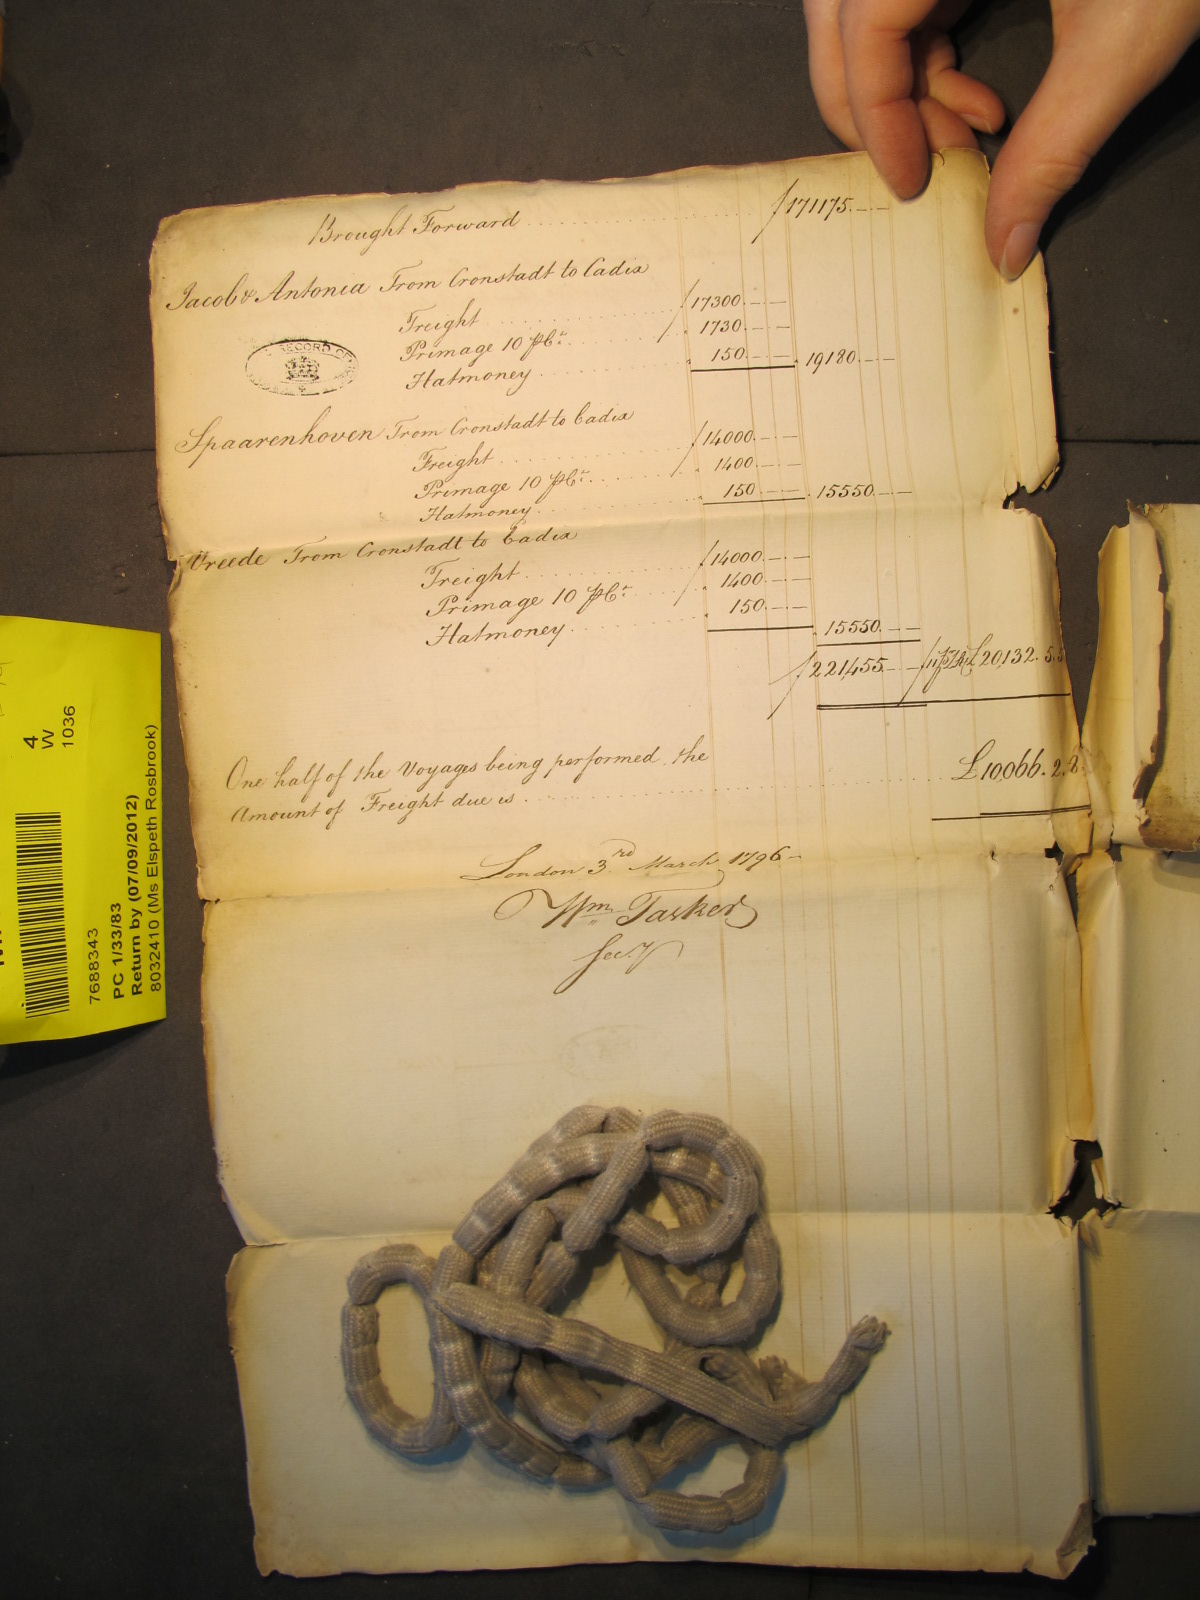 Brought Forward . . . . . . . . . . ƒ171175.——
Jacob & Antonia From Cronstadt to Cadix
Freight . . . . . . . . ƒ17300.——
Primage 10 pCt. . . . . . . 1730.——
Hatmoney . . . . . . . 150.—— . 19180.——
RECORD OF
Spaarenhoven From Cronstadt to Cadix
Freight . . . . . . . . ƒ14000.——
Primage 10 pCt. . . . . . . 1400.——
Hatmoney . . . . . . . 150.—— . 15550.——
Vreede From Cronstadt to Cadix
Freight . . . . . . . . ƒ14000.——
Primage 10 pCt. . . . . . . 1400.——
Hatmoney . . . . . . . 150.——
. 15550.——
ƒ221455.—— £20132. 5. 5
One half of the Voyages being performed the
Amount of Freight due is . . . . . . . . . . £10,066. 2. 8
London 3rd March 1796 –
Wm Tasker
Secy
4
W
1036
7688343
PC 1/33/83
Return by (07/09/2012)
8032410 (Ms Elspeth Rosbrook)